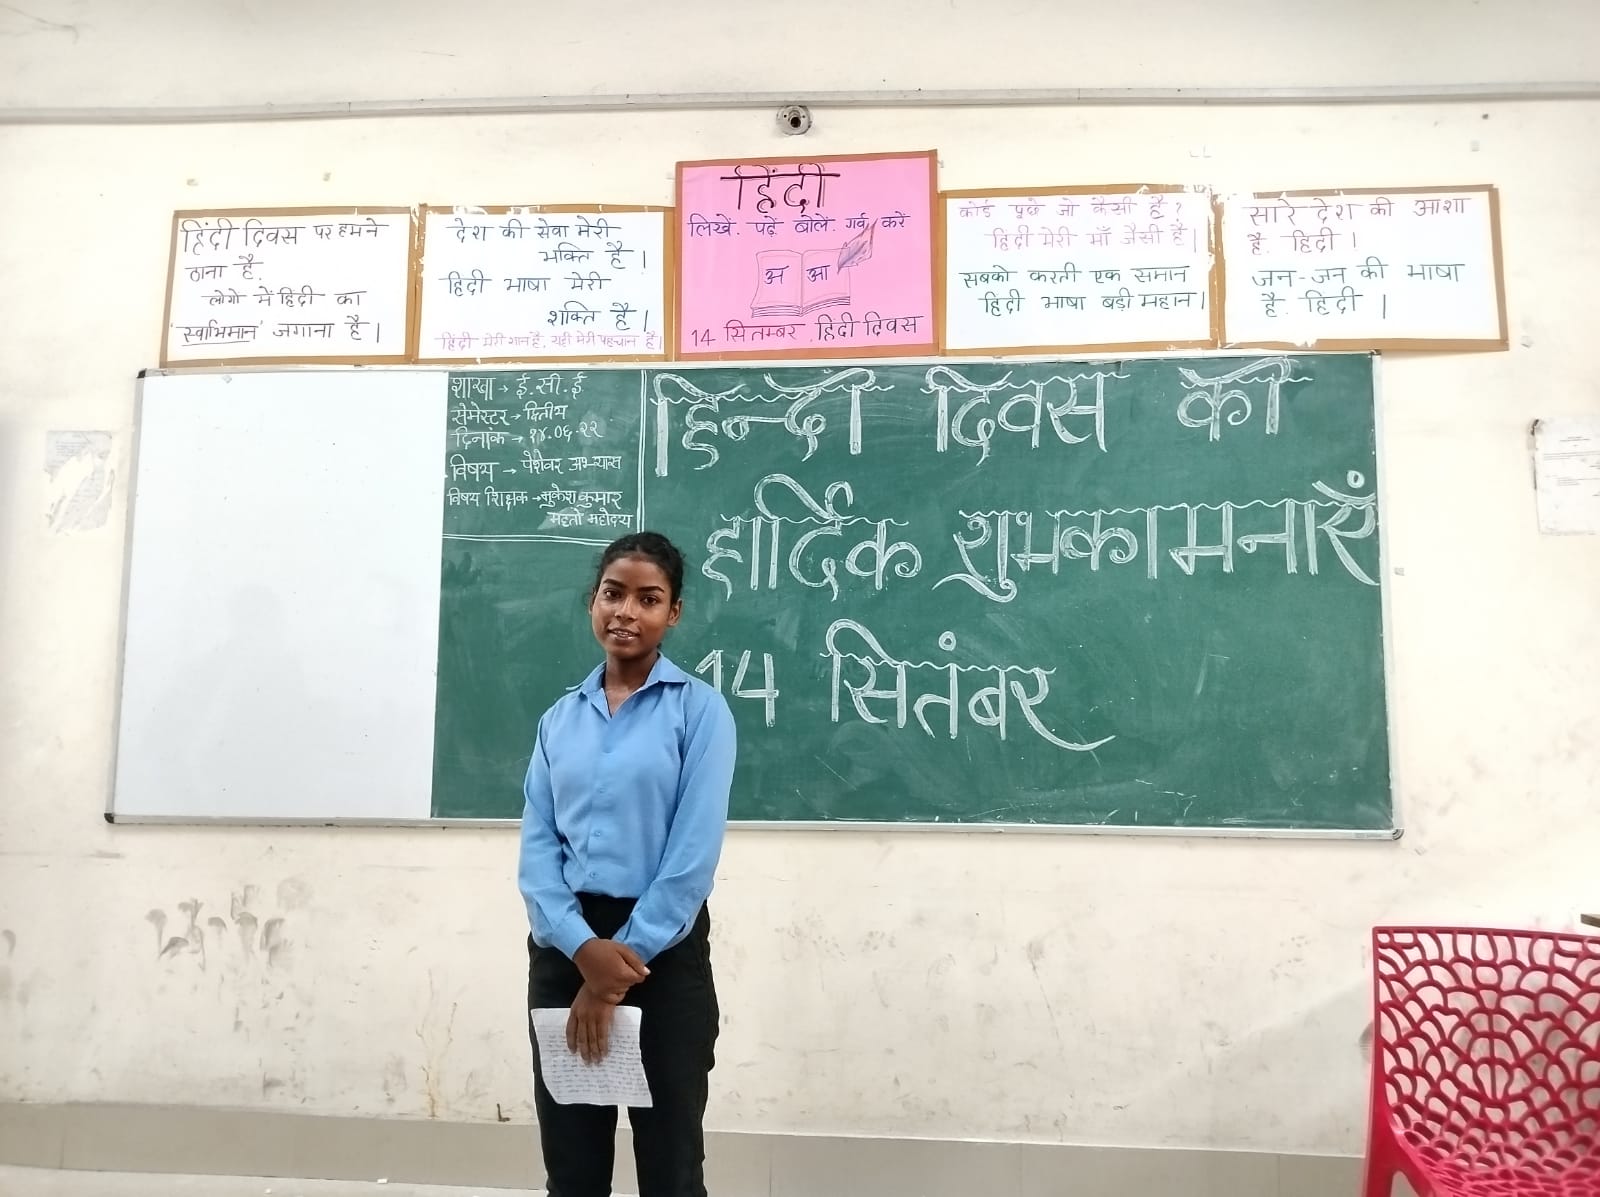 हिंदी दिवस पर हमने
ठाना है.
लोगो में हिंदी का
'स्वाभिमान' जगाना है।
देश की सेवा मेरी
भक्ति है।
हिंदी भाषा मेरी
शक्ति है।
हिंदी मेरी शान है, यही मेरी पहचान है।
हिंदी
लिखें. पढ़ें. बोलें. गर्व करें
अ आ
14 सितम्बर हिंदी दिवस
कोई पूछे जो कैसी है?
हिंदी मेरी माँ जैसी है।
सबको करती एक समान
हिंदी भाषा बड़ी महान।
सारे देश की आशा
है. हिंदी।
जन-जन की भाषा
है. हिंदी।
शाखा → ई.सी.ई
सेमेस्टर → द्वितीय
दिनांक →
विषय → पेशेवर अभ्यास
विषय शिक्षक → मुकेश कुमार
महतो महोदय
हिन्दी दिवस की
हार्दिक शुभकामनाएँ
14 सितंबर